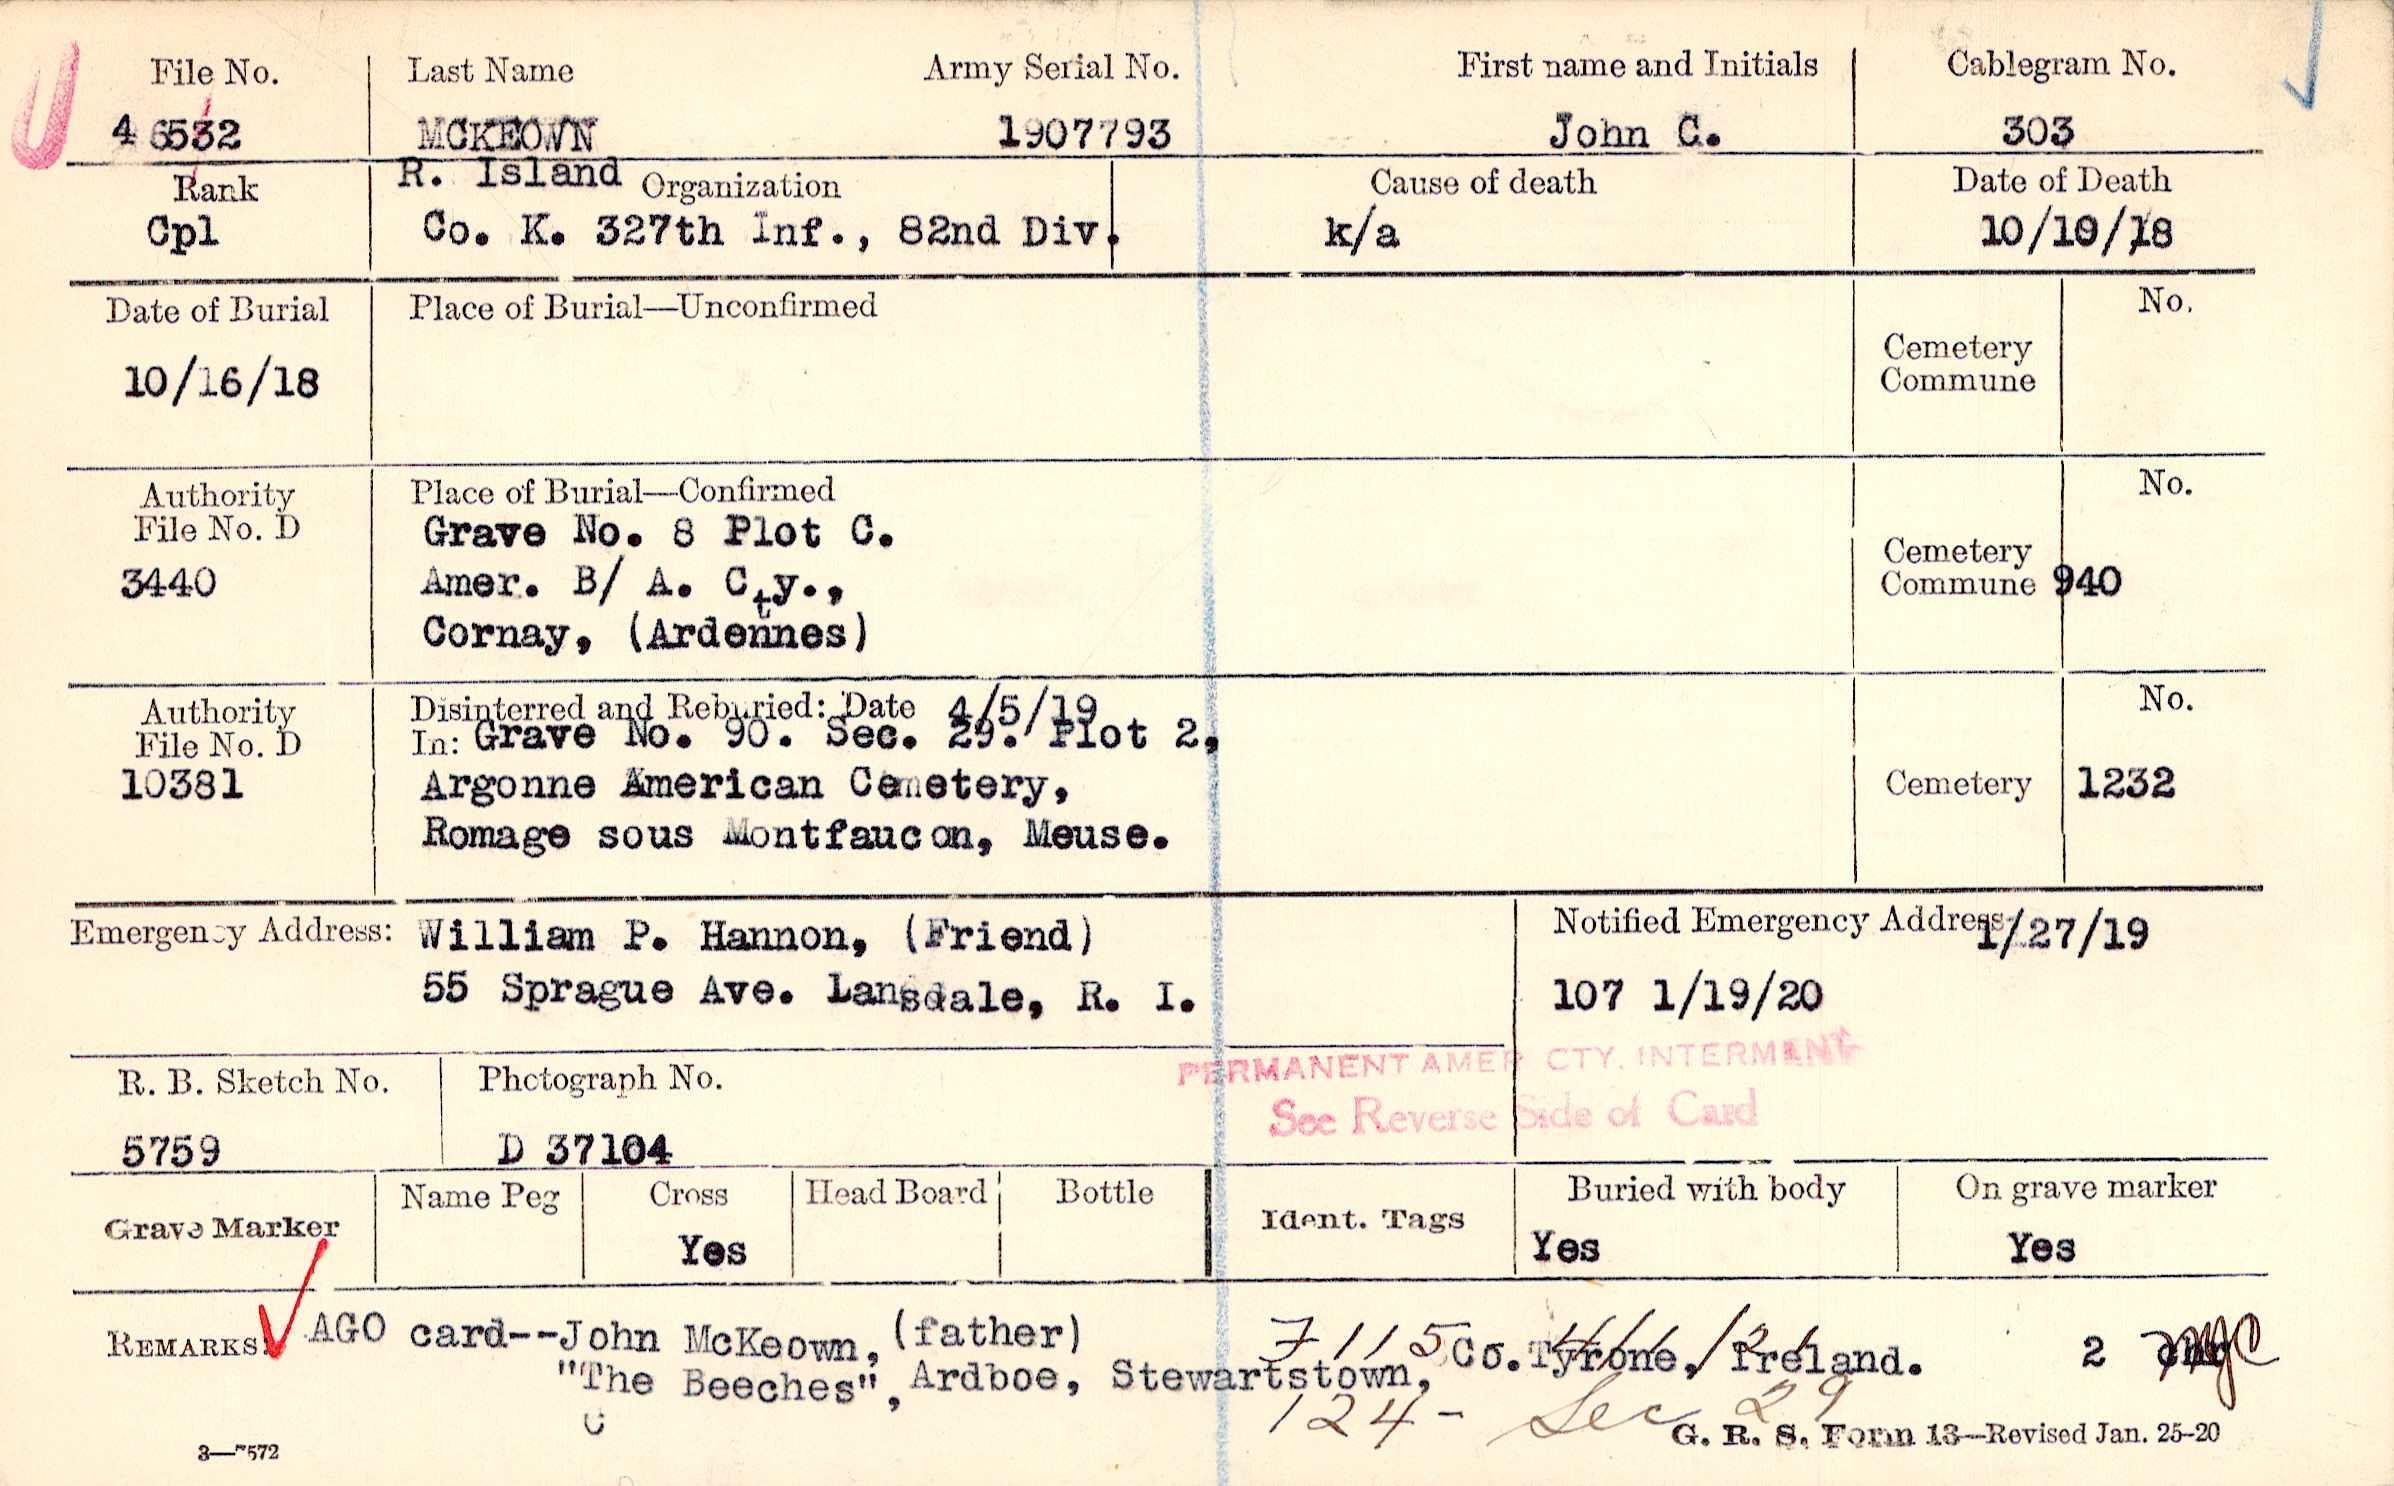 File No. Last Name Army Serial No. First name and Initials Cablegram No.
46532 MCKEOWN 1907793 John C. 303
R. Island
Rank Organization Cause of death Date of Death
Cpl Co. K. 327th Inf., 82nd Div. k/a 10/10/18
Date of Burial Place of Burial—Unconfirmed No.
10/16/18
Cemetery
Commune
Authority Place of Burial—Confirmed No.
File No. D Grave No. 8 Plot C.
3440 Amer. B/ A. Cty.,
Cornay, (Ardennes)
Cemetery
Commune 940
Authority Disinterred and Reburied: Date 4/5/19 No.
File No. D In: Grave No. 90. Sec. 29. Plot 2,
10381 Argonne American Cemetery, Cemetery 1232
Romage sous Montfaucon, Meuse.
Emergency Address: William P. Hannon, (Friend) Notified Emergency Address 1/27/19
55 Sprague Ave. Lansdale, R. I. 107 1/19/20
PERMANENT AMER CTY. INTERMENT
See Reverse Side of Card
R. B. Sketch No. Photograph No.
5759 D 37104
Grave Marker Name Peg Cross Head Board Bottle Ident. Tags Buried with body On grave marker
Yes Yes Yes
REMARKS: AGO card--John McKeown, (father) 7115
"The Beeches", Ardboe, Stewartstown, Co. Tyrone, Ireland. 2
124- Sec 29
G. R. S. Form 13—Revised Jan. 25-20
3—7572